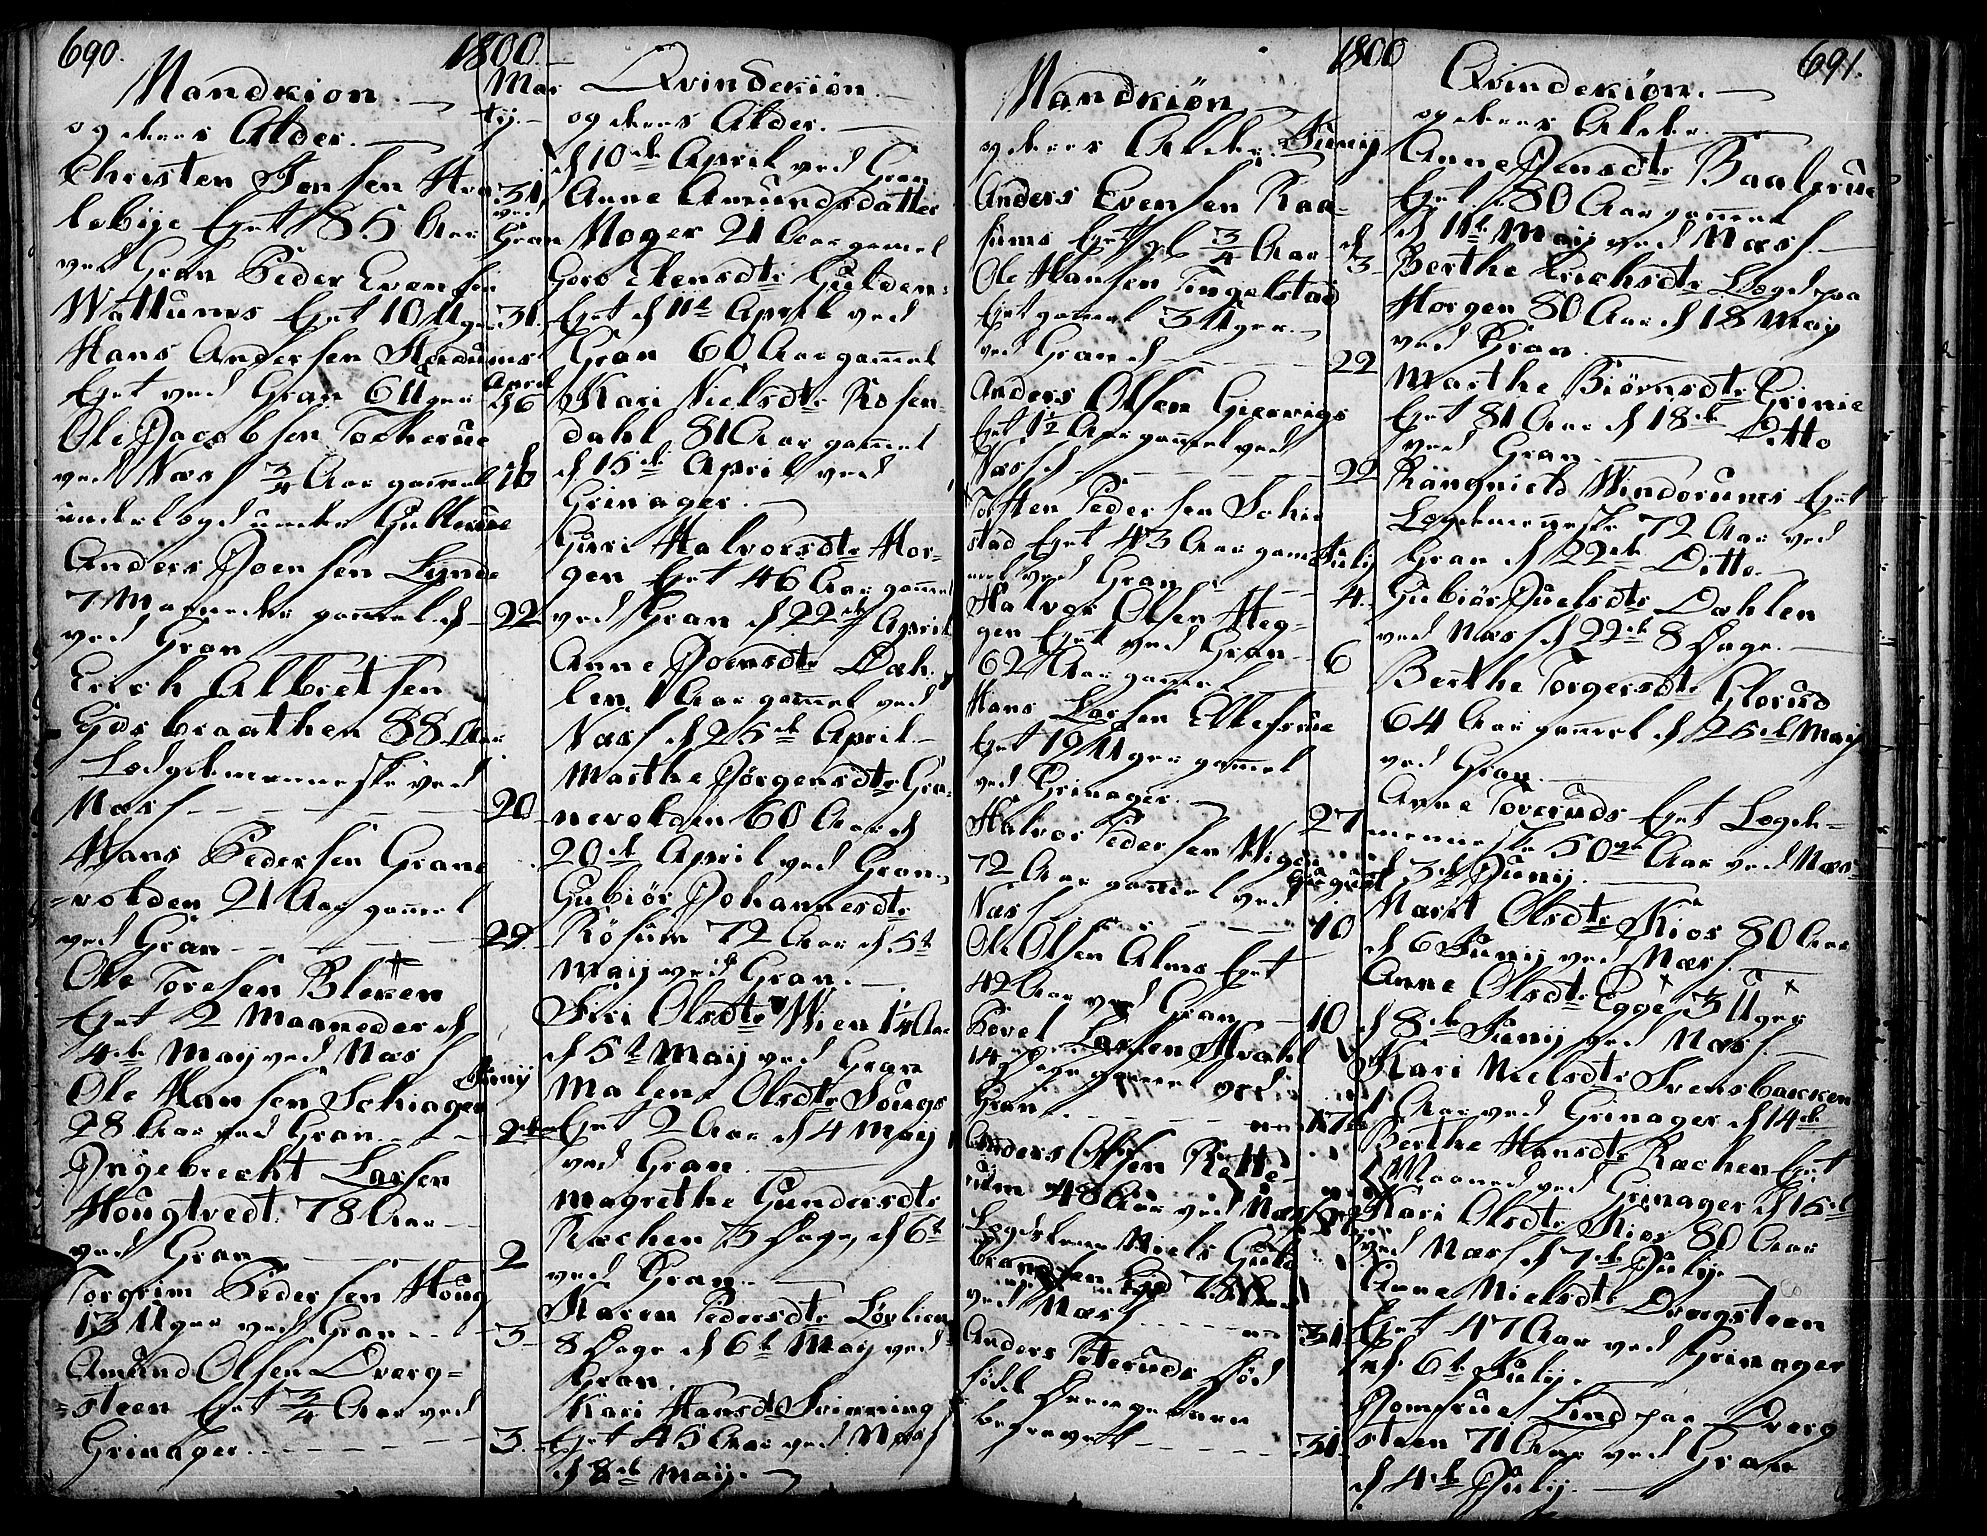 690.
1800.
Mandkiøn
og deres Alder.
Christen Jensen Hva
lebÿe født 85 Aar
ved Gran Peder Evensen
Wattums født 10 Uger
Hans Andersen Hadums
født ved Gran 6 Uger
Ole Jacobsen Tocherue
ved Næs 3/4 Aar gamel
underlagd under Gulterue
Anders Joensen Lynde
7 Maaneder gamel d
ved Gran
Erich Albretsen
Egdsbraathen 88 Aar
Lægdemenneske ved
Næs
Hans Pedersen Grane
volden 21 Aar gamel
ved Gran
Ole Toresen Bleken
født 2 Maaneder d
4de Maÿ ved Næs
Ole Hansen Schiager
28 Aar ved Gran
Jngebrecht Larsen
Hougtvedt 78 Aar
ved Gran
Torgrim Pedersen Houg
13 Uger ved Gran
Amund Olsen Dverg=
steen født 3/4 Aar ved
Grinager
Mar
tÿ.
31.
ved
Gran
31.
April
d 6
d
16
22
20
29
Junÿ
2de
2
3
3.
Qvindekiøn
og deres Alder.
d 10de April ved Gran
Anne Amundsdatter
Moger 21 Aar gamel
Goro Elensdtr Gulden
født d 11te April ved
Gran 60 Aar gamel
Kari Nielsdtr Rosen
dahl 81 Aar gamel
d 15de April ved
Grinager
Guri Halvorsdtr Hor-
gen født 46 Aar gamel
ved Gran d 22de April
Anne Joensdtr Dæh
len 1 Aar gamel ved
Næs d 25de April
Marthe Jørgensdtr Gra-
nevolden 60 Aar d
20de April ved Gran
Gubiør Johannesdtr
Røsum 72 Aar d 5te
Maÿ ved Gran.
Siri Olsdtr Wien 1 1/4 Aar
d 5te Maÿ ved Gran
Malene Olsdtr Sougs
født 2 Aar d 4 Maÿ
ved Gran
Magrethe Gundersdtr
Ræchen 3 Dage, d 6te
ved Gran.
Karen Pedersdtr Løvlien
8 Dage d 6te Maÿ ved
Gran
Kari Hansdtr Svinning
født 45 Aar ved Næs
d 8de Maÿ.
1800
691.
Mandkiøn
og deres Alder.
Anders Evensen Raa-
sums født 3/4 Aar
Ole Hansen Tingelstad
født gamel 3 Uger
ved Gran d
Anders Olsen Gjervigs
født 1 1/2 Aar gamel ved
Næs d
Tosten Pedersen Schie
stad født 43 Aar gam
mel ved Gran
Halvor Olsen Heg-
gen født ved Gran
62 Aar gamel
Hans Larsen Ellefsrue
født 19 Uger gamel
ved Grinager
Halvor Pedersen Wigen
72 Aar gamel ved
Næs
Ole Olsen Alms født
42 Aar ved Gran
Povel Larsen Hvahl
14 Dage gamel ved
Gran
Anders Olsen Rette
um 48 Aar ved Næs
Niels Guld
brandsen
ved Næs
Anders Peteruds Død
født Drengebarn
begravet
Junÿ
d
3
22
22
Julÿ
4.
6
27
August
10
10
17
31
31
Qvindekiøn.
og deres Alder
Anne Jensdtr Baalerue
født 80 Aar gamel
d 11te Maÿ ved Næs
Berthe Erichsdtr Lægd paa
Horgen 80 Aar d 18 Maÿ
ved Gran
Marthe Biørnsdtr Grinie
født 81 Aar d 18de Ditto
ved Gran
Rangnield Windorums født
Lægdemenneske 72 Aar ved
Gran d 22de Ditto
Gubiør Juelsdtr Dæhlen
ved Næs d 22de 8 Dage.
Berthe Torgersdtr Glorud
64 Aar gamel d 25de Maÿ
ved Gran
Anne Toveruds født Lægde-
menneske 50 Aar ved Næs
d 3de Junÿ.
Marit Olsdtr Kios 80 Aar
d 6 Junÿ ved Næs.
Anne Olsdtr Egge 3 Uger
d 8de Junÿ ved Næs
Kari Nielsdtr Svensbacken
1 Aar ved Grinager d 14de
Berthe Hansdtr Ræchen født
1 Maaned ved Grinager d 15de
Kari Olsdtr Kios 80 Aar
ved Næs d 7de Julÿ
Anne Nielsdtr Dvergsteen
født 47 Aar ved Grinager
d 6te Julÿ.
Jomfrue Lind paa Dverg
steen 71 Aar ved Gran
d 4de Julÿ.